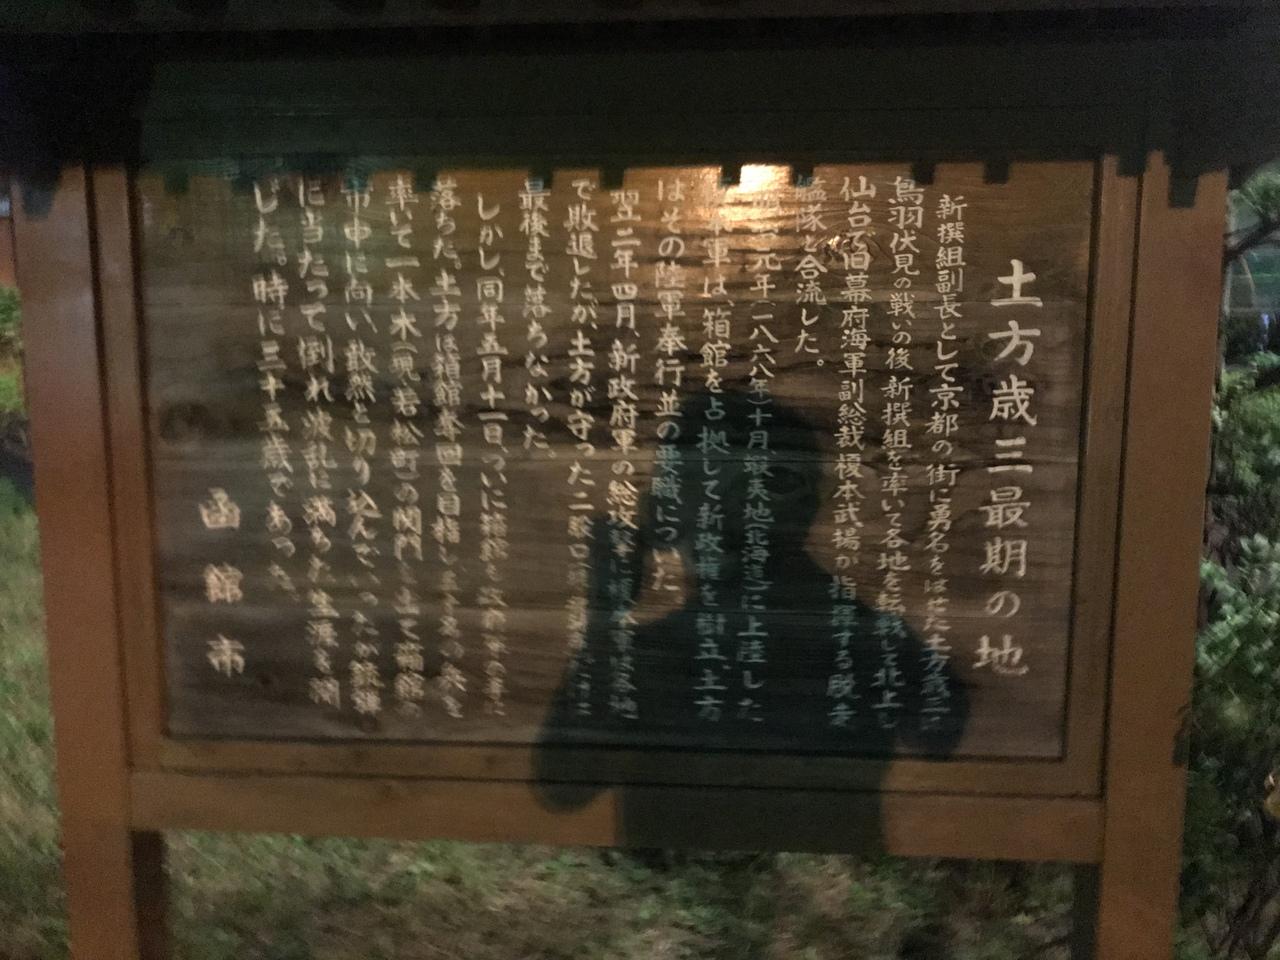 土方歳三最期の地
新撰組副長として京都の街に勇名をはせた土方歳三は
鳥羽伏見の戦いの後新撰組を率いて各地を転戦して北上し
仙台で旧幕府海軍副総裁榎本武揚が指揮する脱走
艦隊と合流した。
元年(一八六八年)十月、蝦夷地(北海道)に上陸した
軍は、箱館を占拠して新政権を樹立、土方
はその陸軍奉行並の要職についた
翌二年四月、新政府軍の総攻撃に榎本軍は各地
で敗退したが、土方が守った二股口
最後まで落ちなかった。
しかし、同年五月十一日、ついに箱館も政府軍の手に
落ちた。土方は箱館奪回を目指し
率いて一本木(現・若松町)の関門を出て箱館の
市中に向い、敢然と切り込んでいったが銃弾
に当たって倒れ波乱に満ちた生涯を閉
じた。時に三十五歳であった。
函館市